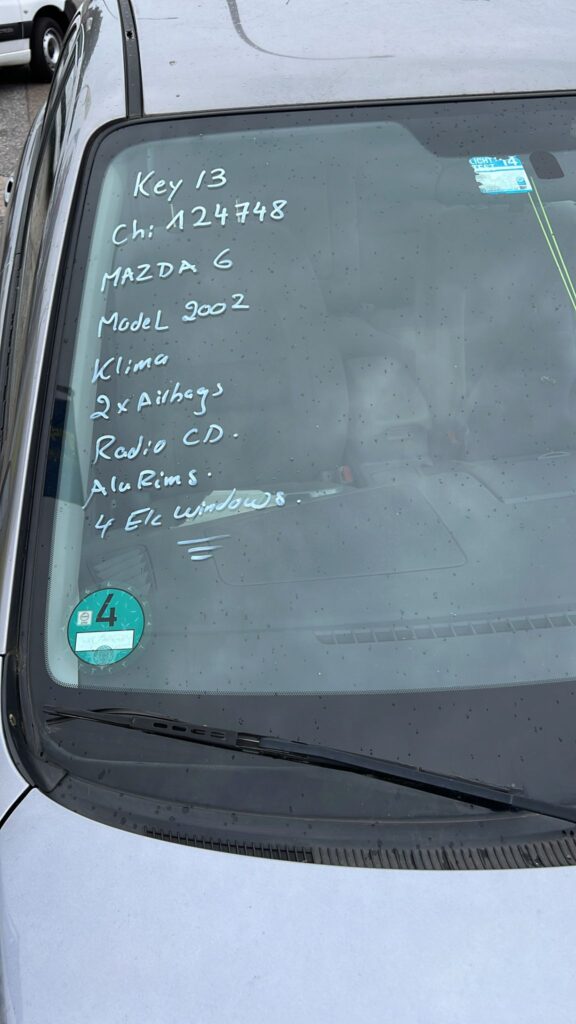 Key 13
Ch: 124748
MAZDA 6
Model 2002
Klima
2x Airbags
Radio CD.
Alu Rims.
4 Elc windows.
4